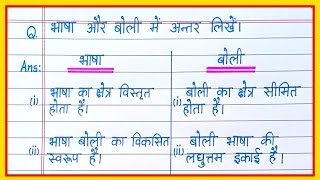 Q. भाषा और बोली में अन्तर लिखें।
Ans: भाषा बोली
(i) भाषा का क्षेत्र विस्तृत होता है।
(i) बोली का क्षेत्र सीमित होता है।
(ii) भाषा बोली का विकसित स्वरूप है।
(ii) बोली भाषा की लघुत्तम इकाई है।